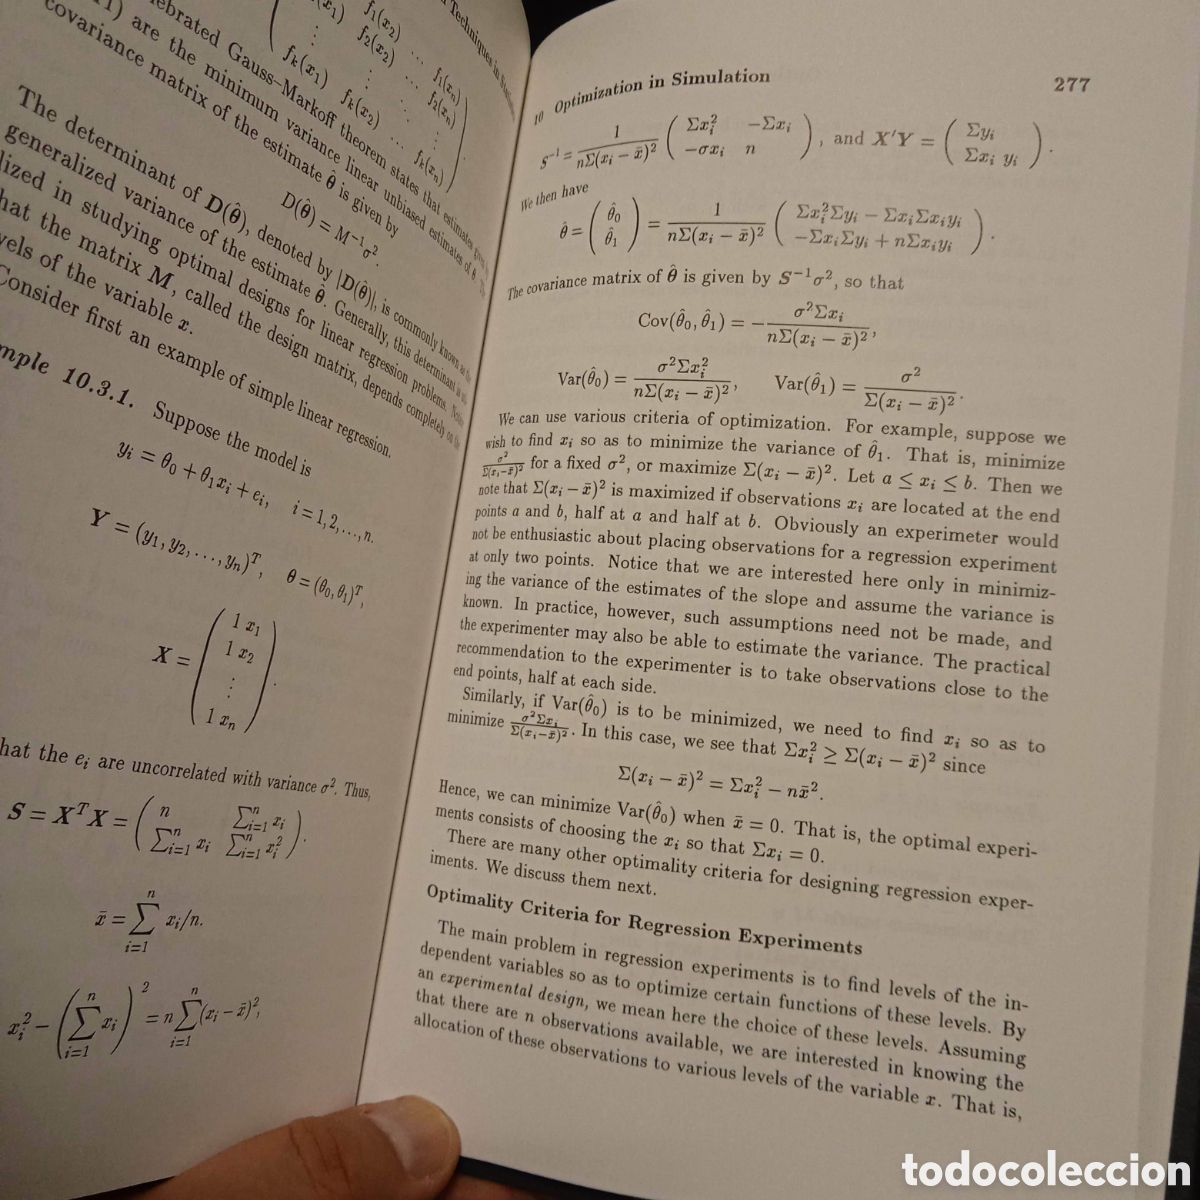 Techniques in Simulation
f₁(x₂) ... f₁(xₙ)
f₂(x₂) ... f₂(xₙ)
fₖ(x₁) fₖ(x₂) ... fₖ(xₙ)
Gauss–Markoff theorem states that estimates
are the minimum variance linear unbiased estimates of θ.
covariance matrix of the estimate θ̂ is given by
D(θ̂) = M⁻¹σ².
The determinant of D(θ̂), denoted by |D(θ̂)|, is commonly known as the
generalized variance of the estimate θ̂. Generally, this determinant is
in studying optimal designs for linear regression problems.
hat the matrix M, called the design matrix, depends completely on the
vels of the variable x.
Consider first an example of simple linear regression.
mple 10.3.1. Suppose the model is
yᵢ = θ₀ + θ₁xᵢ + eᵢ, i = 1, 2, . . . , n.
Y = (y₁, y₂, . . . , yₙ)ᵀ, θ = (θ₀, θ₁)ᵀ,
X = ( 1 x₁
1 x₂
⋮
1 xₙ ).
hat the eᵢ are uncorrelated with variance σ². Thus,
S = XᵀX = ( n Σⁿᵢ₌₁ xᵢ
Σⁿᵢ₌₁ xᵢ Σⁿᵢ₌₁ xᵢ² ).
x̄ = Σⁿᵢ₌₁ xᵢ/n.
xᵢ² − (Σⁿᵢ₌₁ xᵢ)² = n Σⁿᵢ₌₁ (xᵢ − x̄)²,
10 Optimization in Simulation 277
S⁻¹ = 1/nΣ(xᵢ − x̄)² ( Σxᵢ² −Σxᵢ
−σxᵢ n ), and X′Y = ( Σyᵢ
Σxᵢ yᵢ ).
We then have
θ̂ = ( θ̂₀
θ̂₁ ) = 1/nΣ(xᵢ − x̄)² ( Σxᵢ²Σyᵢ − ΣxᵢΣxᵢyᵢ
−ΣxᵢΣyᵢ + nΣxᵢyᵢ ).
The covariance matrix of θ̂ is given by S⁻¹σ², so that
Cov(θ̂₀, θ̂₁) = − σ²Σxᵢ/nΣ(xᵢ − x̄)²,
Var(θ̂₀) = σ²Σxᵢ²/nΣ(xᵢ − x̄)², Var(θ̂₁) = σ²/Σ(xᵢ − x̄)².
We can use various criteria of optimization. For example, suppose we
wish to find xᵢ so as to minimize the variance of θ̂₁. That is, minimize
σ²/Σ(xᵢ−x̄)² for a fixed σ², or maximize Σ(xᵢ − x̄)². Let a ≤ xᵢ ≤ b. Then we
note that Σ(xᵢ − x̄)² is maximized if observations xᵢ are located at the end
points a and b, half at a and half at b. Obviously an experimeter would
not be enthusiastic about placing observations for a regression experiment
at only two points. Notice that we are interested here only in minimiz-
ing the variance of the estimates of the slope and assume the variance is
known. In practice, however, such assumptions need not be made, and
the experimenter may also be able to estimate the variance. The practical
recommendation to the experimenter is to take observations close to the
end points, half at each side.
Similarly, if Var(θ̂₀) is to be minimized, we need to find xᵢ so as to
minimize σ²Σxᵢ/Σ(xᵢ−x̄)². In this case, we see that Σxᵢ² ≥ Σ(xᵢ − x̄)² since
Σ(xᵢ − x̄)² = Σxᵢ² − nx̄².
Hence, we can minimize Var(θ̂₀) when x̄ = 0. That is, the optimal experi-
ments consists of choosing the xᵢ so that Σxᵢ = 0.
There are many other optimality criteria for designing regression exper-
iments. We discuss them next.
Optimality Criteria for Regression Experiments
The main problem in regression experiments is to find levels of the in-
dependent variables so as to optimize certain functions of these levels. By
an experimental design, we mean here the choice of these levels. Assuming
that there are n observations available, we are interested in knowing the
allocation of these observations to various levels of the variable x. That is,
todocoleccion